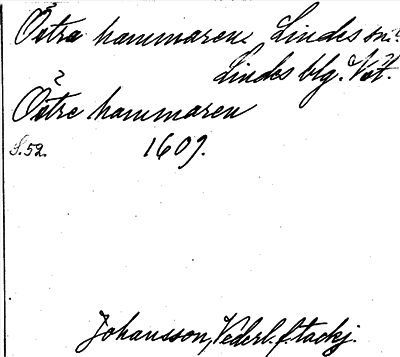 Östra hammaren. Lindes sn.
Lindes blg. Vstl.
Östre hammaren
S. 52. 1609.
Johansson, Vederl. f. tackj.